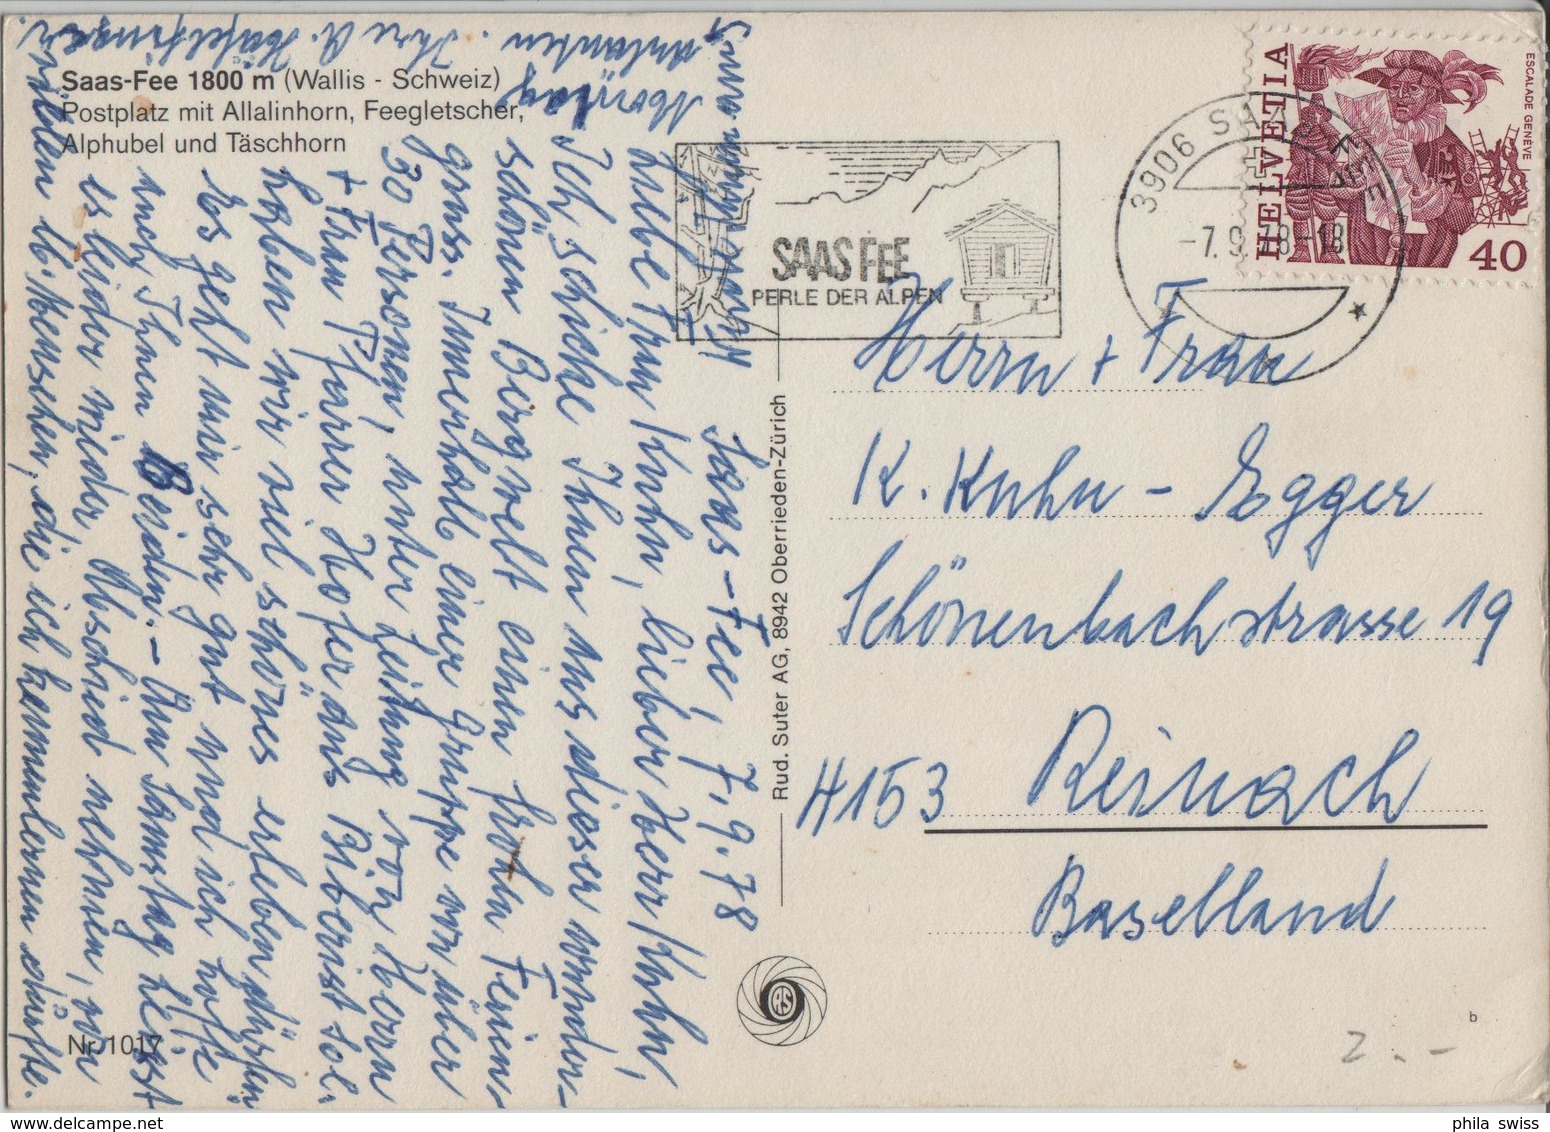 Saas-Fee 1800 m (Wallis - Schweiz)
Postplatz mit Allalinhorn, Feegletscher,
Alphubel und Täschhorn
SAAS FEE
PERLE DER ALPEN
3906 SAAS-FEE
-7.9.78-18
HELVETIA
ESCALADE GENÈVE
40
Saas-Fee, 7.9.78
Liebe Frau Kuhn, lieber Herr Kuhn,
Ich schicke Ihnen aus dieser wunder-
schönen Bergwelt einen frohen Ferien-
gruss. Innerhalb einer Gruppe von über
30 Personen, unter Leitung von Herrn
+ Frau Pfarrer Hofer aus Biberist sol.
haben wir viel schönes erleben dürfen.
Es geht mir sehr gut und ich hoffe
auch Ihnen Beiden. - Am Samstag heisst
es leider wieder Abschied nehmen, von
vielen lb. Menschen, die ich kennenlernen durfte.
Ihre A.
Herrn + Frau
K. Kuhn - Egger
Schönenbachstrasse 19
4153 Reinach
Baselland
Rud. Suter AG, 8942 Oberrieden-Zürich
Nr. 1017
b
2.-
phila swiss